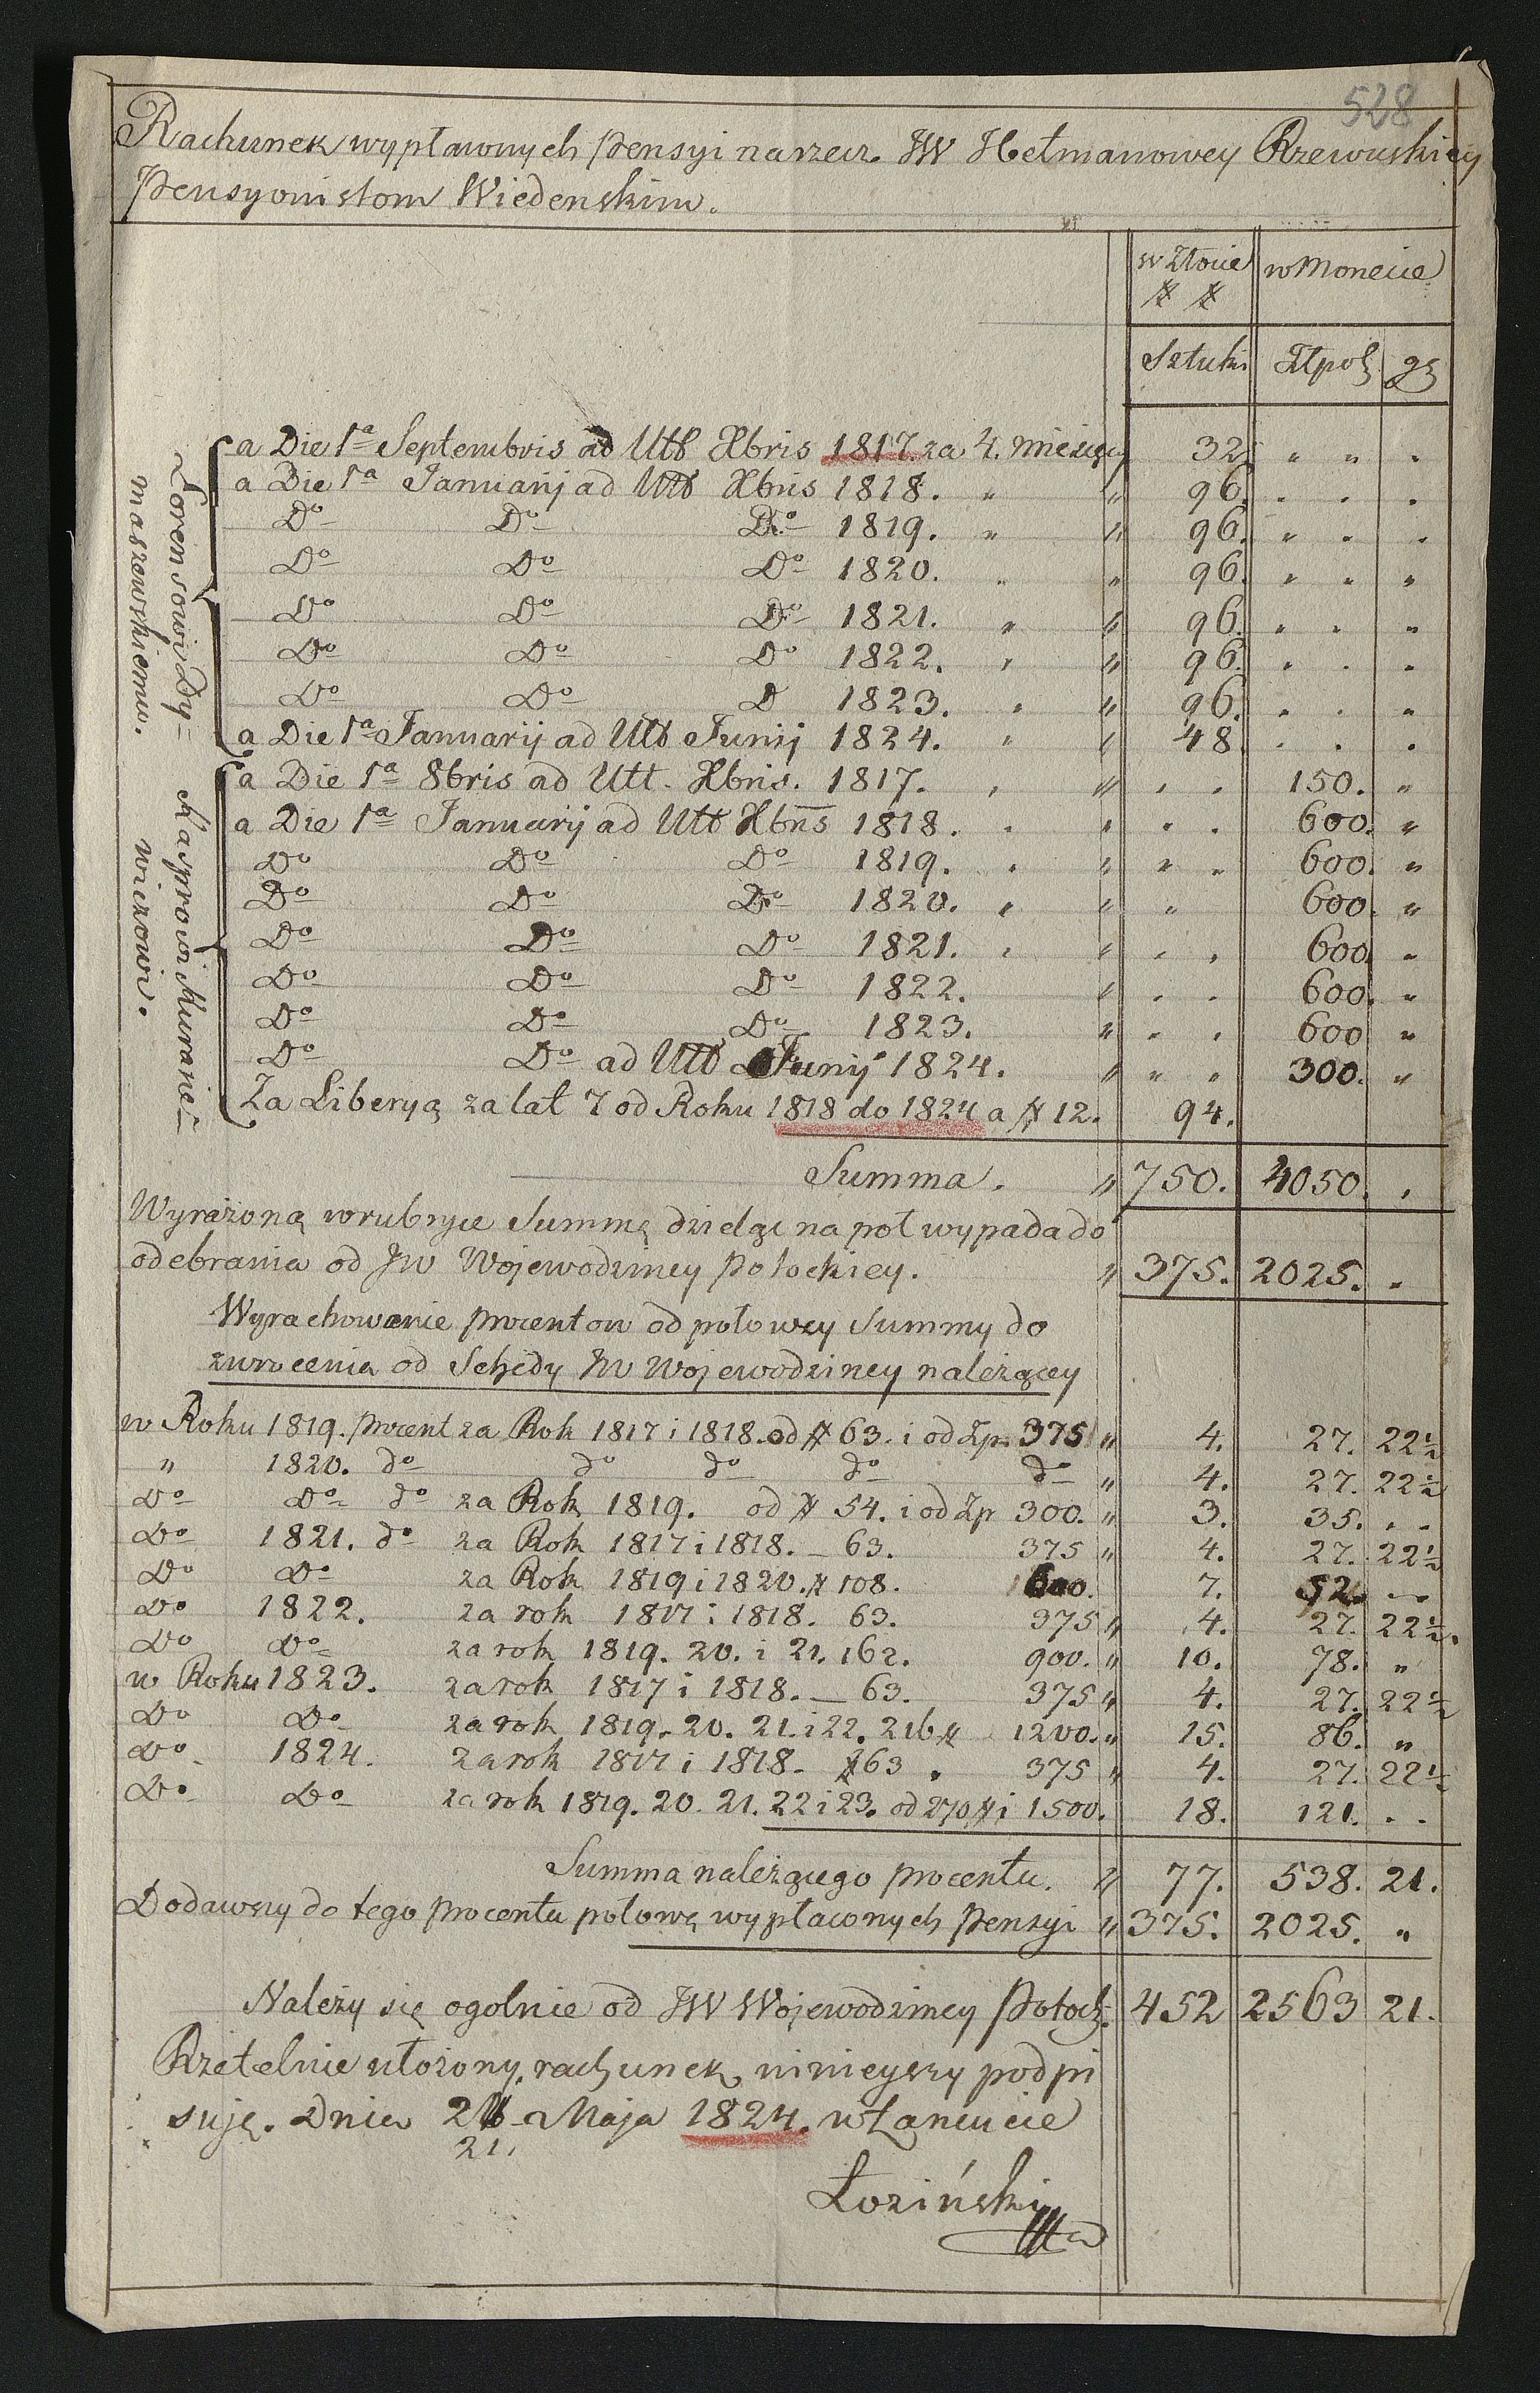 528
Rachunek wypłaconych Pensyi na rzecz JW Hetmanowey Rzewuskiey
Pensyonistom Wiedenskim.
w Złocie w Monecie
# #
Sztuki Złpol gr
Lorensowi Dy=
maszowskiemu.
a Die 1a Septembris ad Ult Xbris 1817. za 4. Miesięcy 32. " " "
a Die 1a Januarij ad Ult Xbris 1818. " " 96. " " "
Do Do Do 1819. " " 96. " " "
Do Do Do 1820. " " 96. " " "
Do Do Do 1821. " " 96. " " "
Do Do Do 1822. " " 96. " " "
Do Do D 1823. " " 96. " " "
a Die 1a Januarij ad Ult Junij 1824. " " 48. " " "
Kasprowi Muranie=
wiczowi.
a Die 1a 8bris ad Ult. Xbris. 1817. " " " " 150. "
a Die 1a Januarij ad Ult Xbris 1818. " " " " 600. "
Do Do Do 1819. " " " " 600. "
Do Do Do 1820. " " " 600. "
Do Do Do 1821. " " " " 600. "
Do Do Do 1822. " " " 600. "
Do Do Do 1823. " " " 600 "
Do Do ad Ult Junij 1824. " " " 300. "
Za Liberyą za lat 7 od Roku 1818 do 1824 a # 12. 94.
Summa. " 750. 4050. "
Wyrażoną w rubryce Summę dzieląc na poł wypada do
odebrania od JW Wojewodziney Potockiey. " 375. 2025. "
Wyrachowanie procentow od połowey Summy do
zwrocenia od Schedy JW Wojewodziney należącey
w Roku 1819. procent za Rok 1817 i 1818. od # 63. i od Zp. 375 " 4. 27. 22½
" 1820. do do do do do " 4. 27. 22½
Do Do do za Rok 1819. od # 54. i od Zp 300. " 3. 35. " "
Do 1821. do za Rok 1817 i 1818. – 63. 375 " 4. 27. 22½
Do Do za Rok 1819 i 1820. # 108. 600. 7. 52. "
Do 1822. za rok 1817 i 1818. 63. 375 " 4. 27. 22½.
Do Do za rok 1819. 20. i 21. 162. 900. " 10. 78. "
w Roku 1823. za rok 1817 i 1818. – 63. 375 " 4. 27. 22½
Do Do za rok 1819. 20. 21. i 22. 216 # 1200. " 15. 86. "
Do 1824. za rok 1817 i 1818. # 63. 375 " 4. 27. 22½
Do Do za rok 1819. 20. 21. 22 i 23. od 270 # i 1500. 18. 121. " "
Summa należącego procentu. " 77. 538. 21.
Dodawszy do tego procentu połowę wypłaconych Pensyi " 375. 2025. "
Należy się ogolnie od JW Wojewodziney Potock. 452 2563 21.
Rzetelnie ułożony rachunek ninieyszy podpi
suję. Dnia Maja 1824. w Łancucie
21.
Łoziński